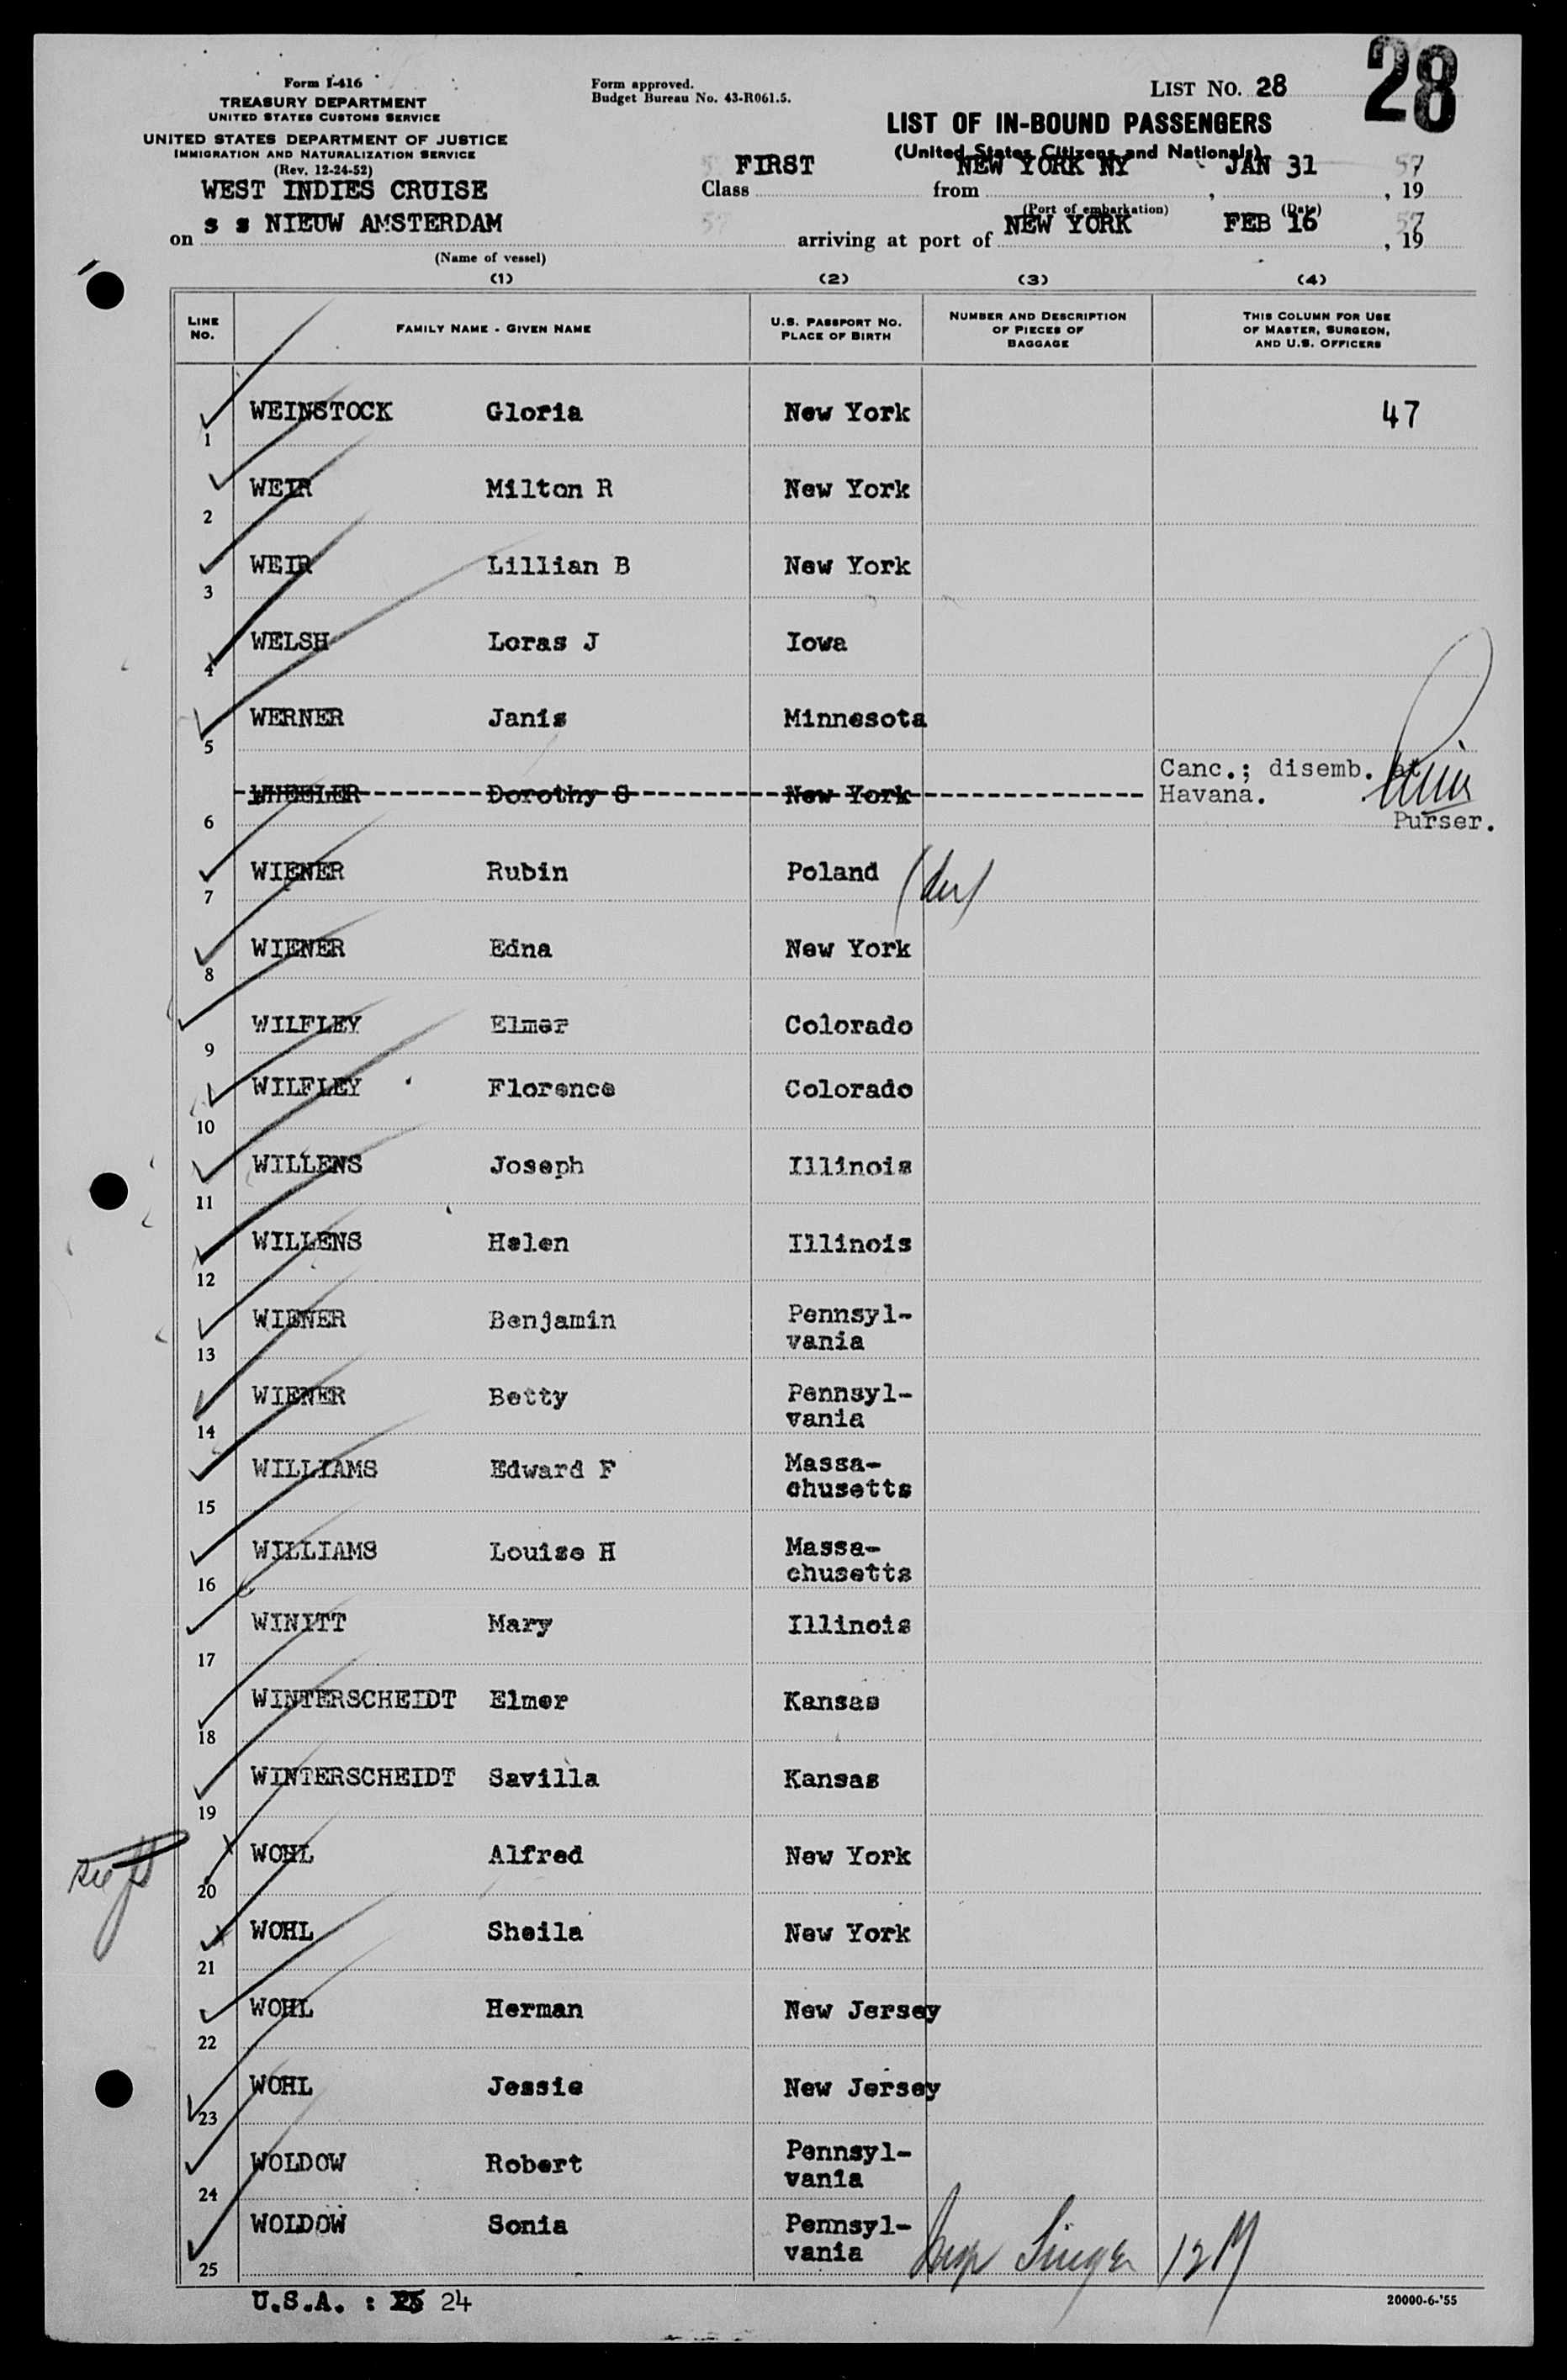 28
Form I-416
TREASURY DEPARTMENT
UNITED STATES CUSTOMS SERVICE
UNITED STATES DEPARTMENT OF JUSTICE
IMMIGRATION AND NATURALIZATION SERVICE
(Rev. 12-24-52)
Form approved.
Budget Bureau No. 43-R061.5.
LIST NO. 28
LIST OF IN-BOUND PASSENGERS
(United States Citizens and Nationals)
WEST INDIES CRUISE
Class FIRST from NEW YORK NY, JAN 31, 19 57
(Port of embarkation) (Date)
on s s NIEUW AMSTERDAM arriving at port of NEW YORK FEB 16, 19 57
(Name of vessel)
(1) (2) (3) (4)
LINE NO. FAMILY NAME - GIVEN NAME U.S. PASSPORT NO. PLACE OF BIRTH NUMBER AND DESCRIPTION OF PIECES OF BAGGAGE THIS COLUMN FOR USE OF MASTER, SURGEON, AND U.S. OFFICERS
1 WEINSTOCK Gloria New York 47
2 WEIR Milton R New York
3 WEIR Lillian B New York
4 WELSH Loras J Iowa
5 WERNER Janis Minnesota
6 WHEELER Dorothy S New York Canc.; disemb. at
Havana.
Purser.
7 WIENER Rubin Poland
8 WIENER Edna New York
9 WILFLEY Elmer Colorado
10 WILFLEY Florence Colorado
11 WILLENS Joseph Illinois
12 WILLENS Helen Illinois
13 WIENER Benjamin Pennsyl-
vania
14 WIENER Betty Pennsyl-
vania
15 WILLIAMS Edward F Massa-
chusetts
16 WILLIAMS Louise H Massa-
chusetts
17 WINITT Mary Illinois
18 WINTERSCHEIDT Elmer Kansas
19 WINTERSCHEIDT Savilla Kansas
20 WOHL Alfred New York
21 WOHL Sheila New York
22 WOHL Herman New Jersey
23 WOHL Jessie New Jersey
24 WOLDOW Robert Pennsyl-
vania
25 WOLDOW Sonia Pennsyl-
vania
U.S.A. : 25 24
20000-6-'55